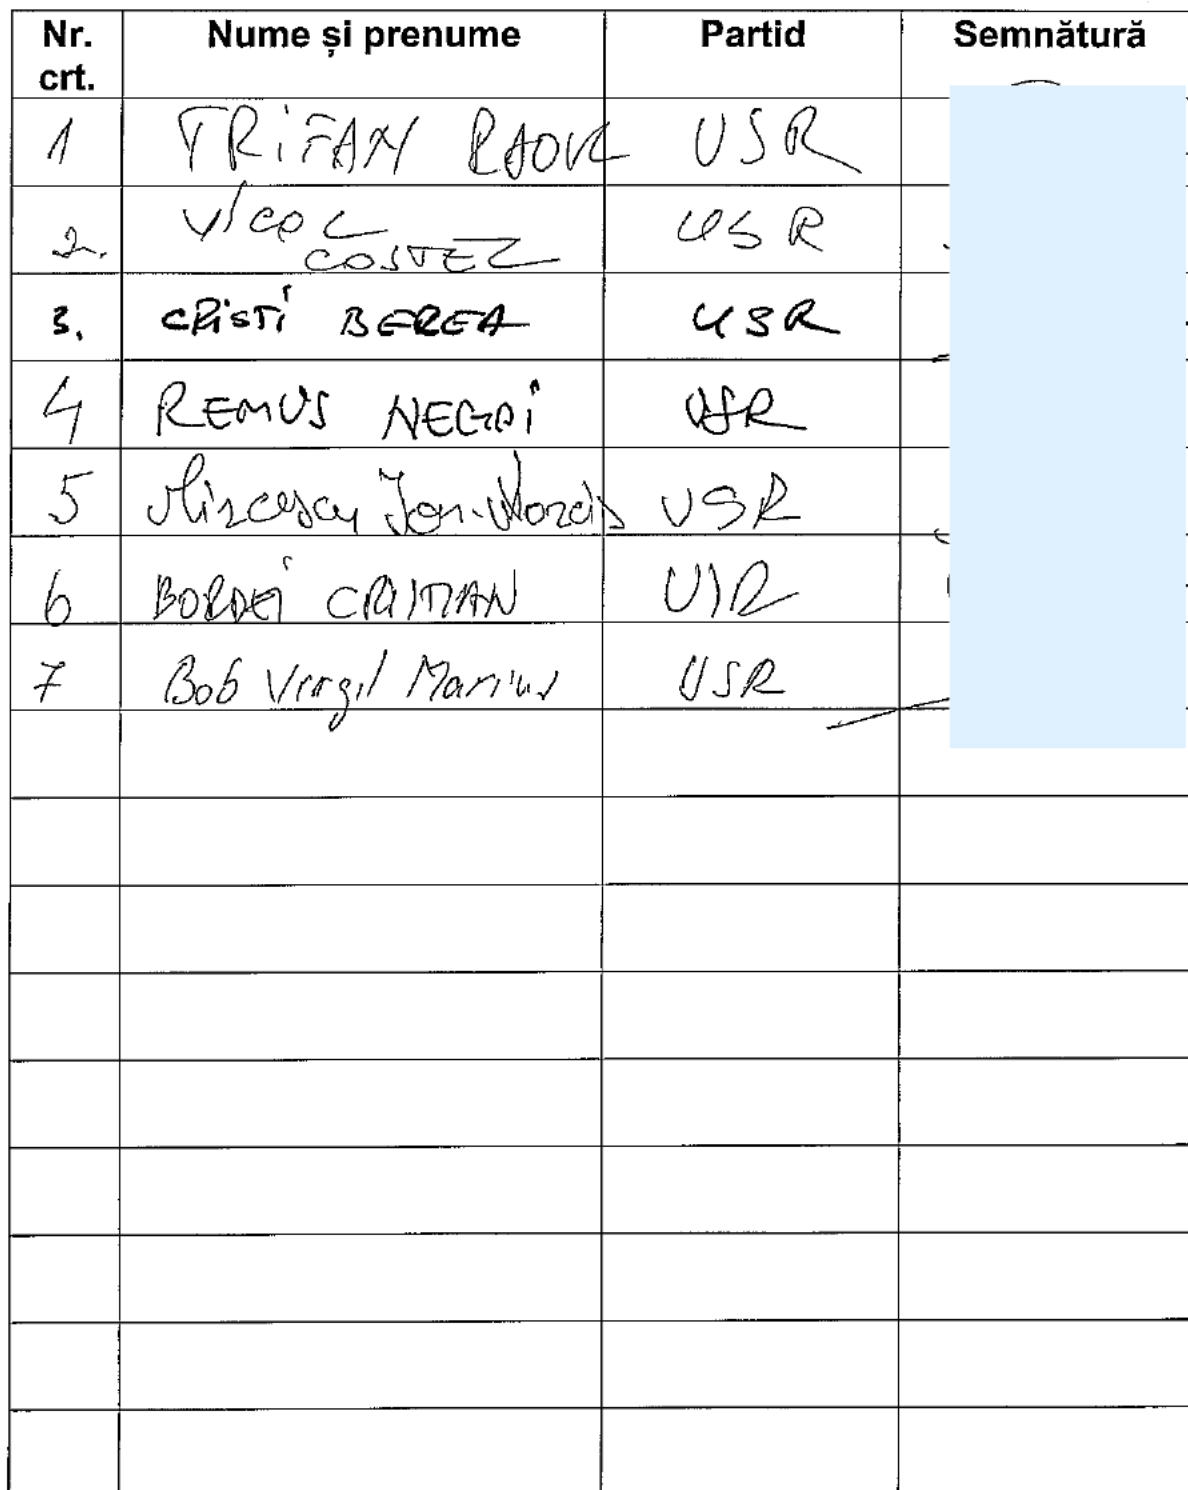 Nr. crt. Nume și prenume Partid Semnătură
1 TRiFAN RAOUL USR
2. VICOL COSTEL USR
3. CRiSTi BEREA USR
4 REMUS NEGOi USR
5 Ion USR
6 BORDEi CRISTIAN USR
7 Bob Virgil Marius USR